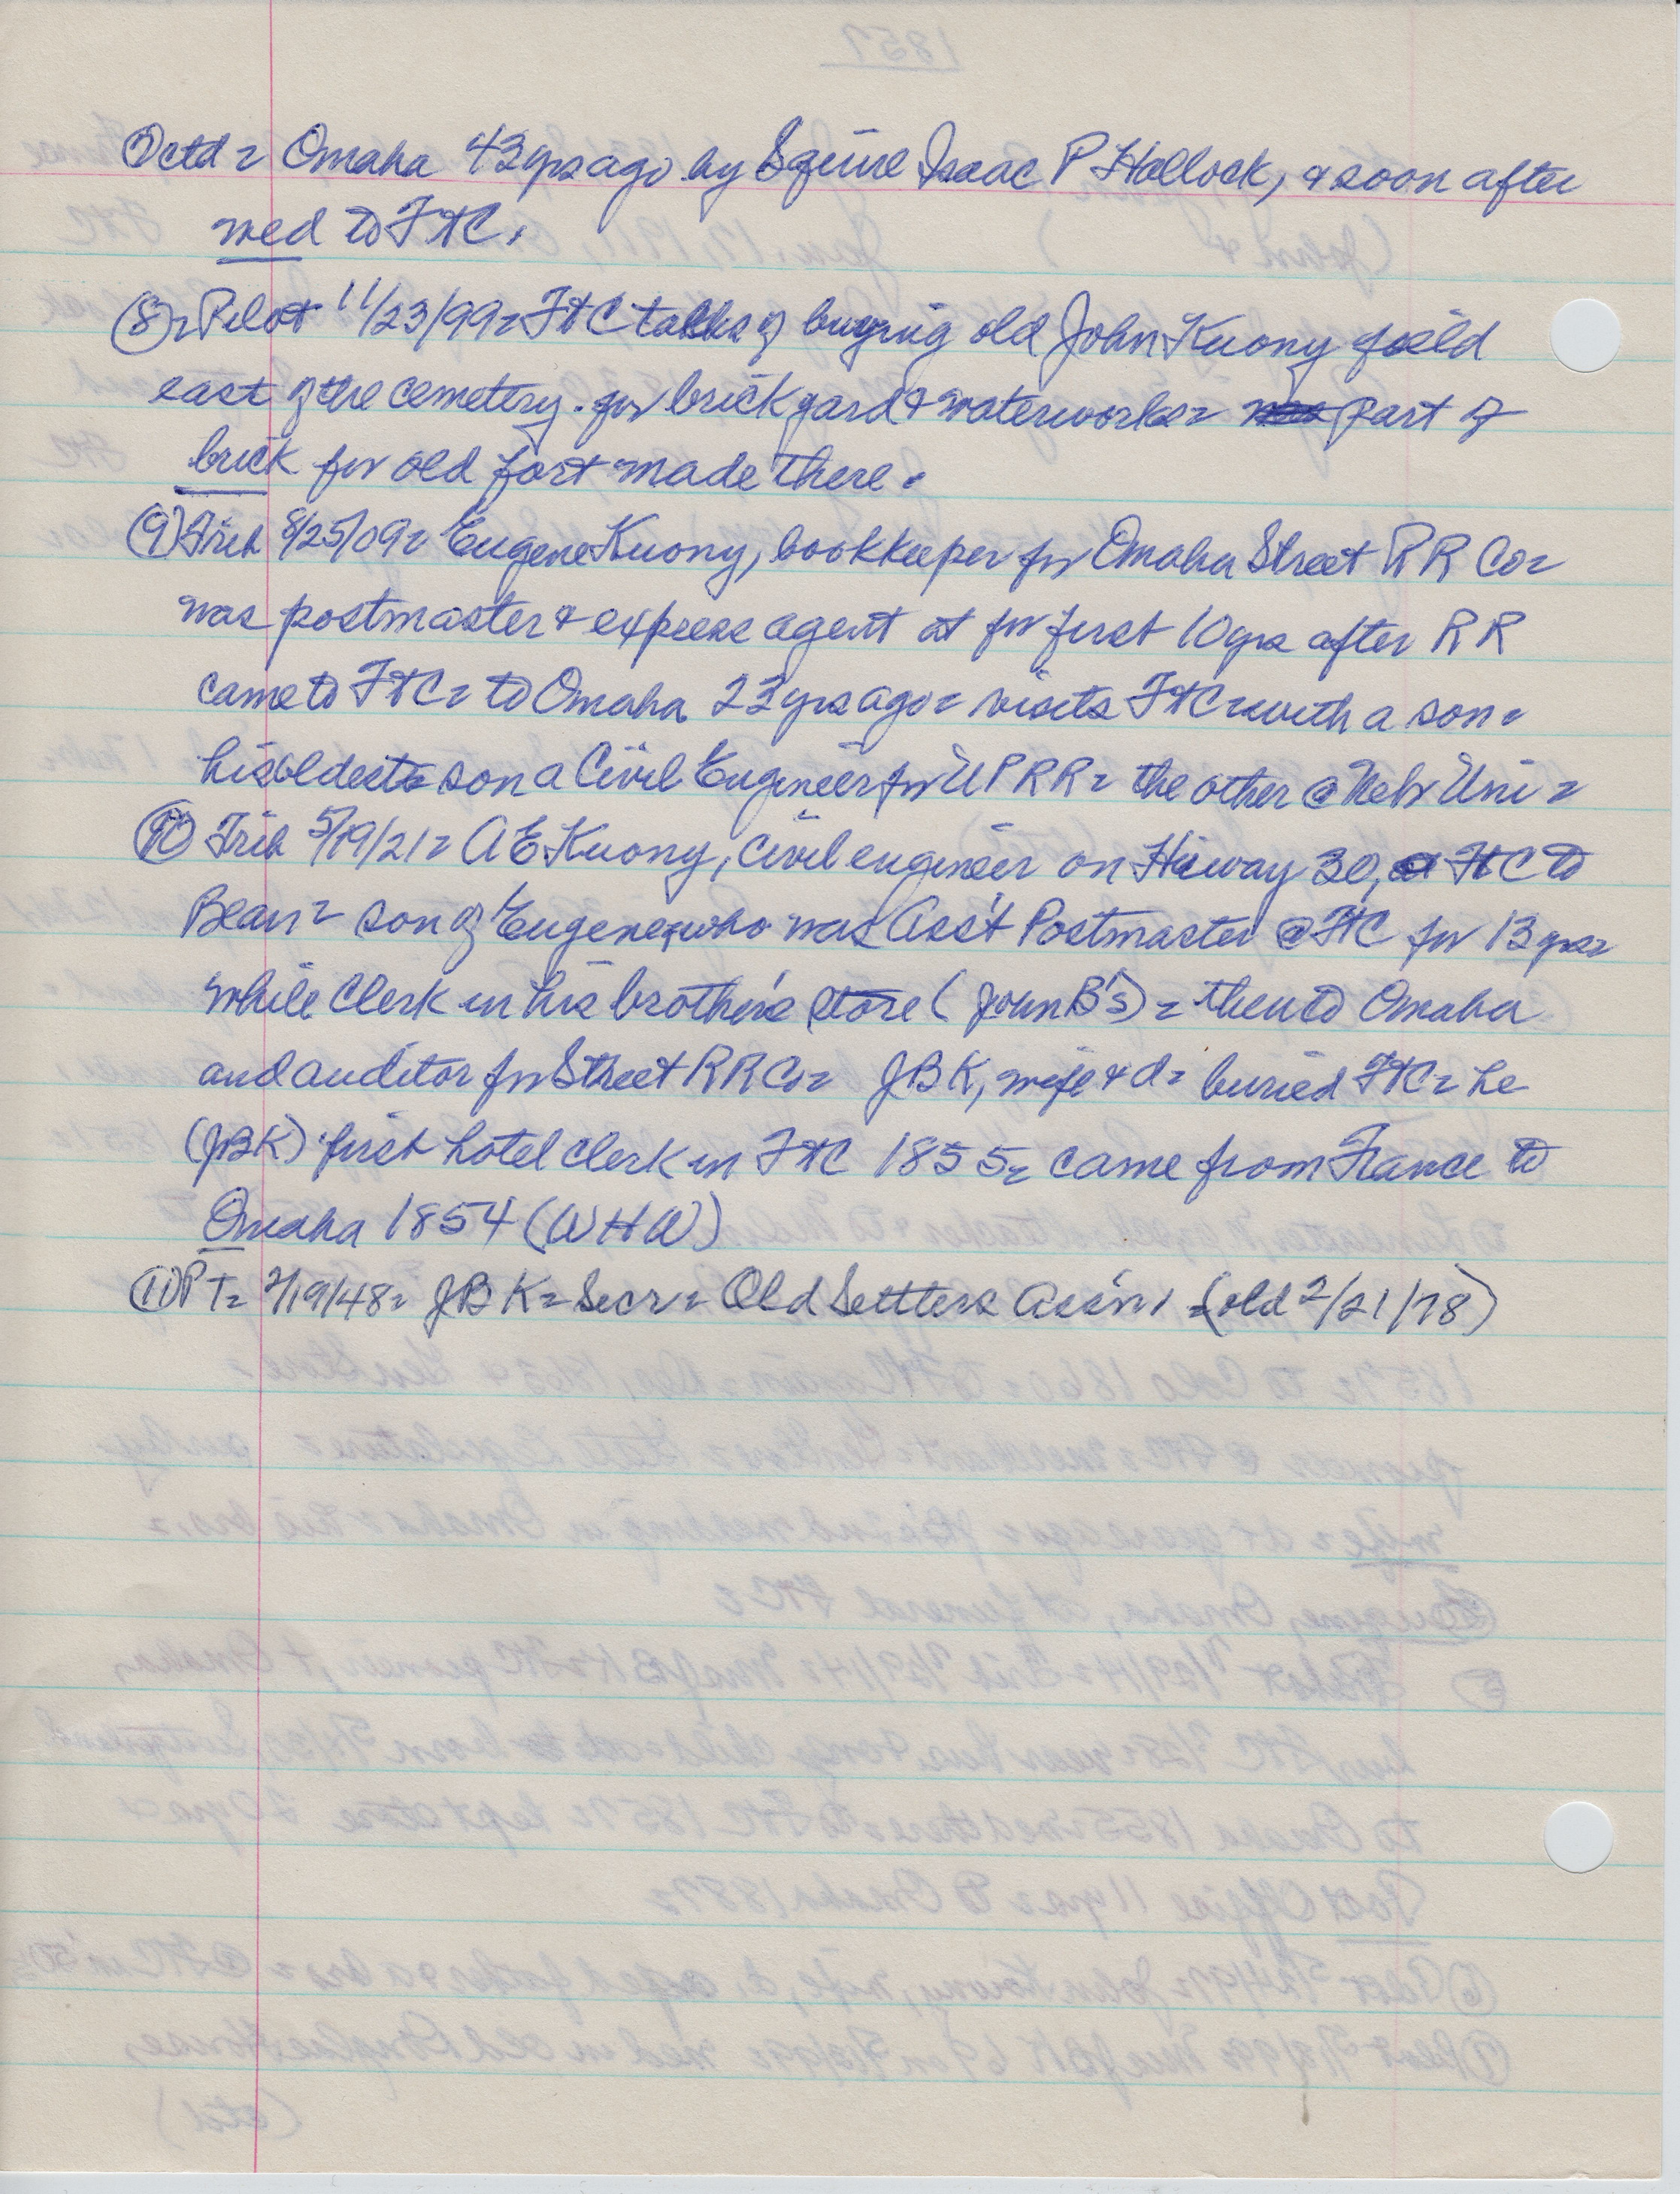 ⑦ctd = Omaha 43 yrs ago by Squire Isaac P Hallock, & soon after
med to FtC.
⑧ = Pilot 11/23/99 = FtC talks of buying old John Kuony field
east of the cemetery. for brick yard & waterworks = part of
brick for old fort made there.
⑨ Trib 8/25/09 = Eugene Kuony, bookkeeper for Omaha Street RR Co =
was postmaster & express agent at for first 10 yrs after RR
came to FtC = to Omaha 23 yrs ago = visits FtC = with a son =
his oldest son a Civil Engineer for UPRR = the other @ Neb Uni =
⑩ Trib 5/19/21 = A E Kuony, civil engineer on Hiway 30, FtC to
Blair = son of Eugene, who was Ass't Postmaster @ FtC for 13 yrs =
while clerk in his brother's store (John B's) = then to Omaha
and auditor for Street RR Co = JBK, wife & d = buried FtC = he
(JBK) first hotel clerk in FtC 1855 = came from France to
Omaha 1854 (WHW)
⑪ PT = 2/19/48 = JBK = Secr = Old Settlers Ass'n, = (old 2/21/78)